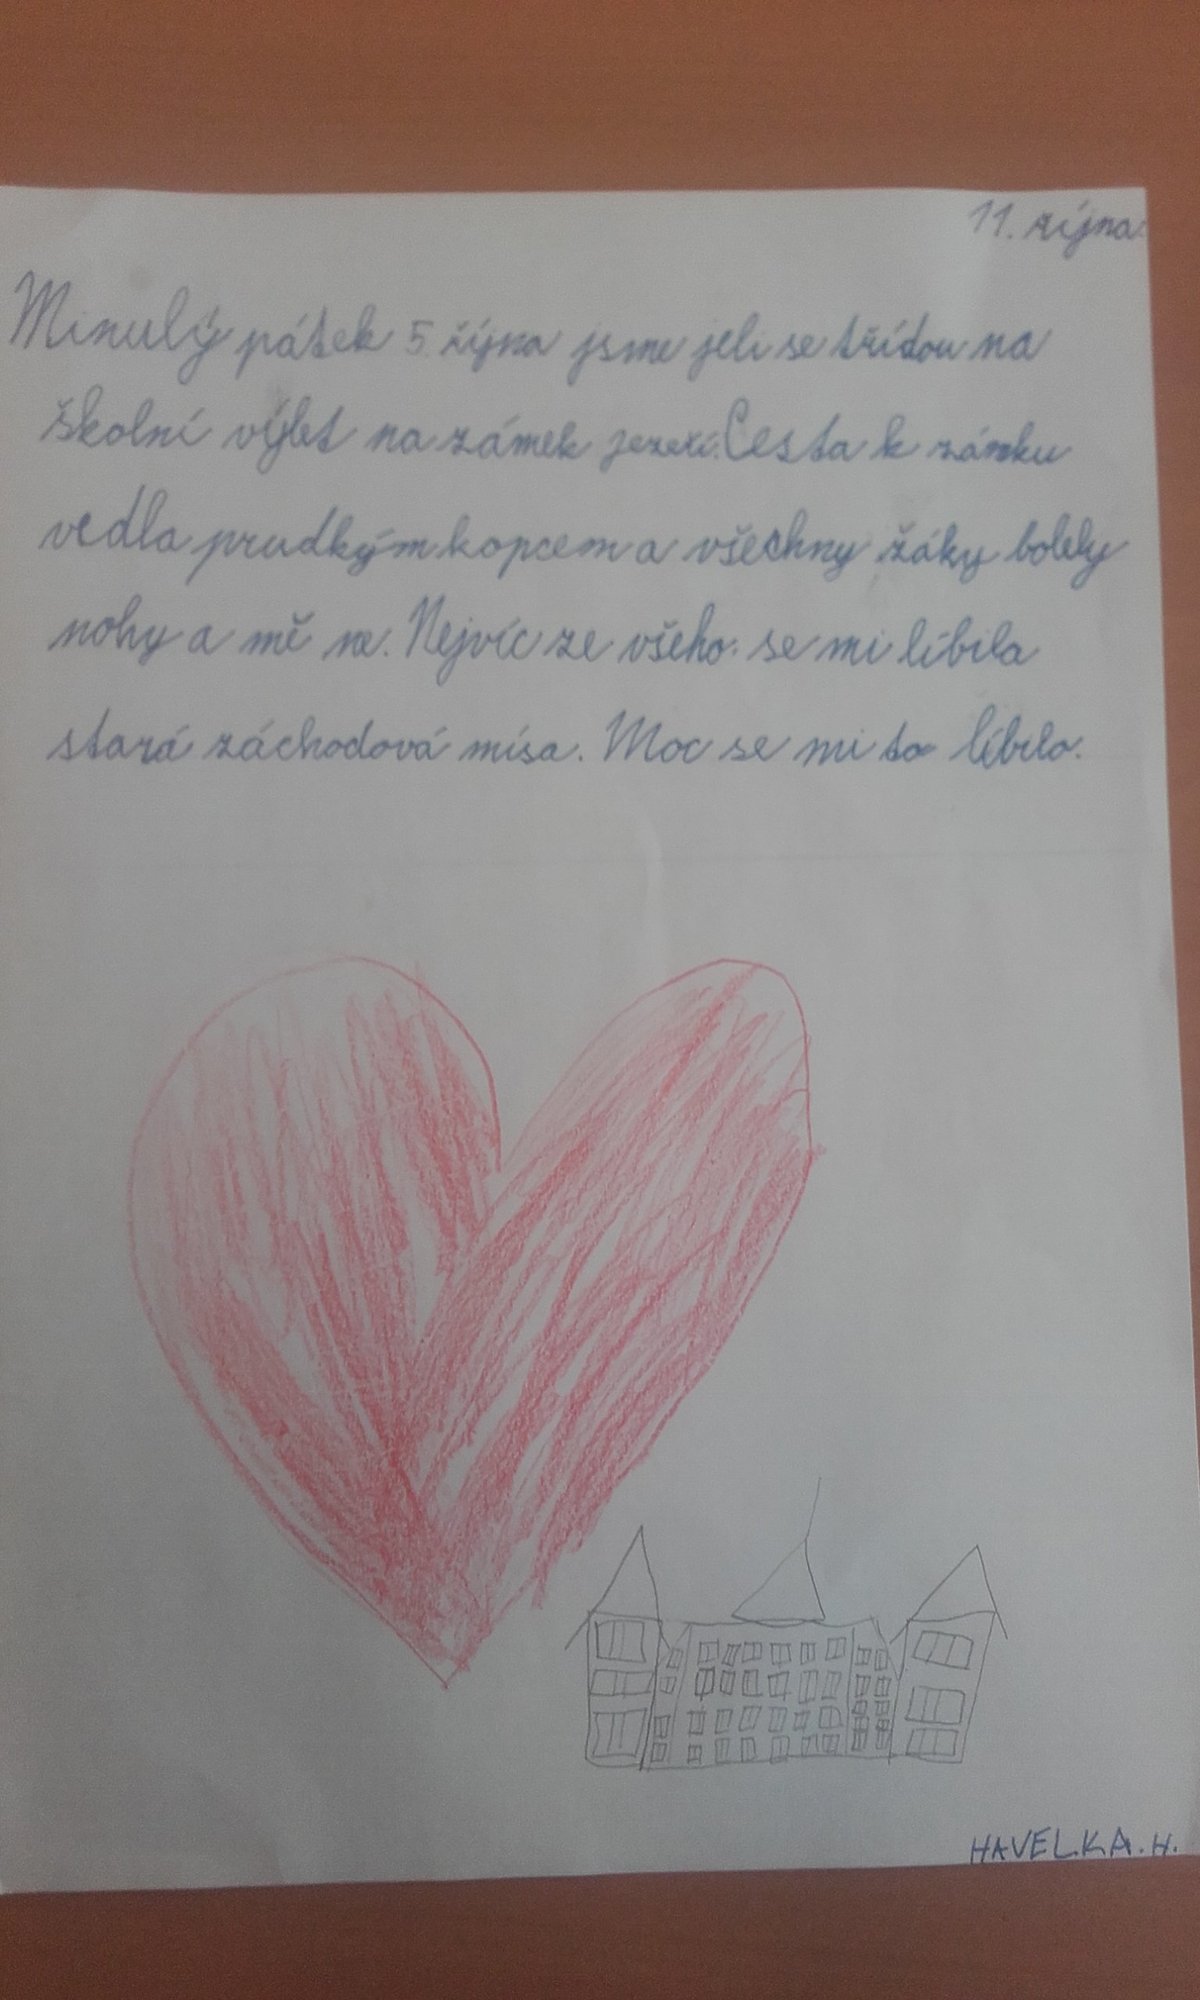 11. října.
Minulý pátek 5 října jsme jeli se třídou na
školní výlet na zámek jezeří. Cesta k zámku
vedla prudkým kopcem a všechny žáky bolely
nohy a mě ne. Nejvíc ze všeho se mi líbila
stará záchodová mísa. Moc se mi to líbilo.
HAVELKA. H.